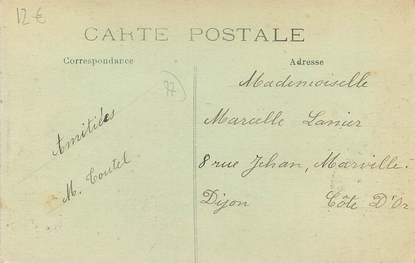 12 €
CARTE POSTALE
Correspondance
Adresse
77
Amitiés
M. Toutel
Mademoiselle
Marcelle Lanier
8 rue Jehan, Marville.
Dijon Côte D'Or